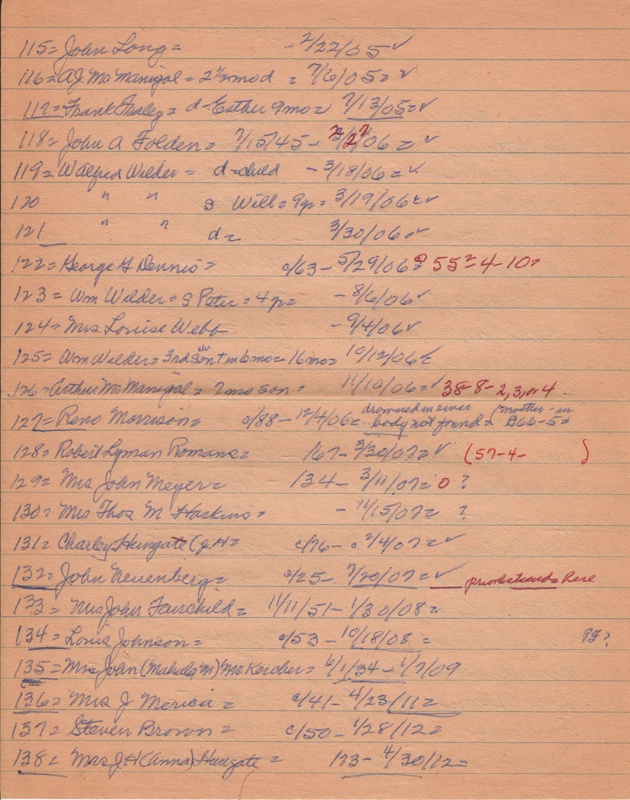 115= John Long= - 2/22/05 ✓
116= A.J. McManigal = 2½ mo d = 7/6/05= ✓
117= Frank = d-Esther 9mo= 7/13/05= ✓
118= John A Folden= 7/15/45 - 2/27/06 = ✓
119= Walfred Wilder = d=child - 3/18/06= ✓
120 " " S Will= 9yr= 3/19/06= ✓
121 " " d= 3/30/06= ✓
122= George G Dennis= c/63 - 5/29/06= 55=4-10=
123= Wm Wilder= S Peter= 4yr= - 8/6/06 ✓
124= Mrs Louise Webb - 9/4/06 ✓
125= Wm Wilder= 3rd son = 16mo= 10/12/06=
126= Arthur McManigal= 7mo son= 11/10/06= ✓ 38-8-2,3,or 4
127= Reno Morrison= c/88 - 12/4/06= drowned in river body not found= (mother-in B66-5=
128= Robert Lyman Romans= 167 - 3/30/07= ✓ (57-4- )
129= Mrs John Meyer= 134 - 3/11/07= 0 ?
130= Mrs Thos M Haskins= - 11/15/07= ?
131= Charley Hungate (J.H= c/76 - c 2/4/07= ✓
132= John Neuenberg= c/25 - 7/20/07= ✓ Here
133= Mrs John Fairchild= 11/11/51 - 1/30/08=
134= Louis Johnson= c/53 - 10/18/08 = ?
135= Mrs John (Mahala M) McKercher= 6/1/34 - 1/7/09
136= Mrs J Merica= c/41 - 4/23/11=
137= Steven Brown= c/50 - 1/28/12=
138= Mrs J.H (Anna) Hungate= 123 - 4/30/12=